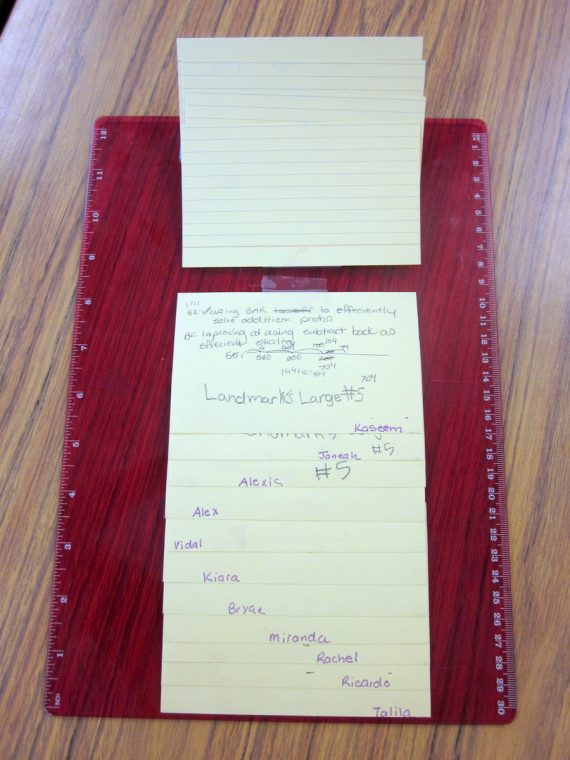 1/11
BS: Using
to efficiently
solve addition probs
BK Improving at using subtract back as
efficient strategy
104
551
500
600
704
704
Landmarks Large #5
Kaseem
Janeah #5
#5
Alexis
Alex
Vidal
Kiara
Bryan
Miranda
Rachel
Ricardo
Talila
12
11
10
9
8
7
6
5
4
3
2
1
INCH
1
2
3
4
5
6
7
8
9
10
11
12
13
14
15
16
17
18
19
20
21
22
23
24
25
26
27
28
29
30